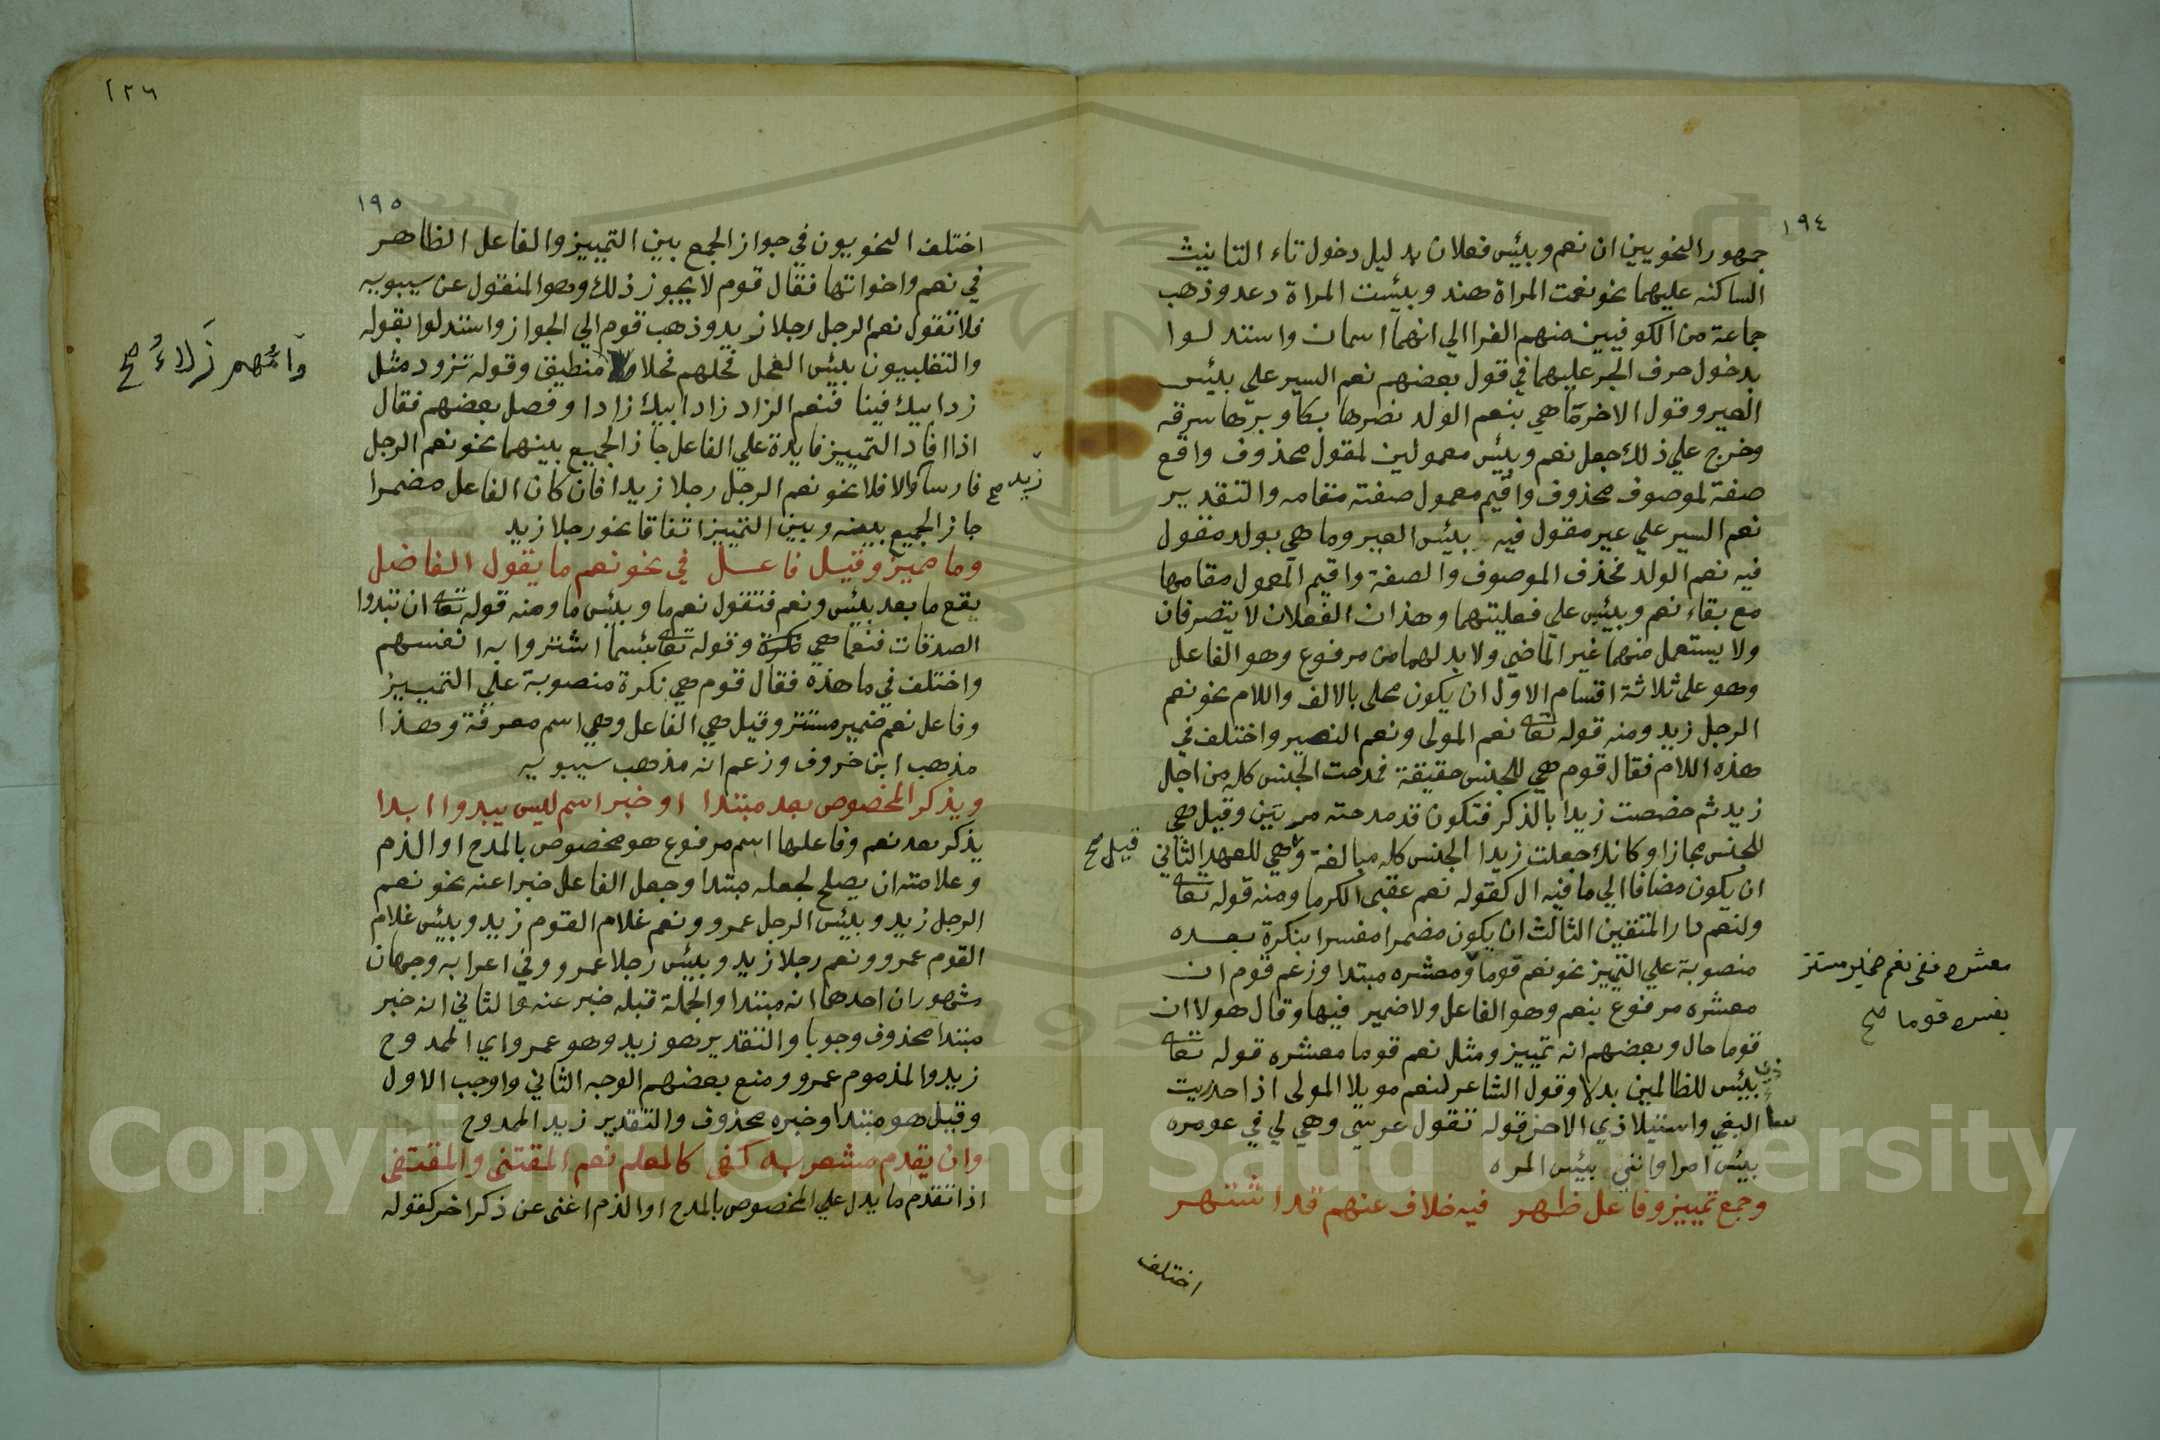 ١٩٤
جمهور النحويين ان نعم وبئيس فعلان بدليل دخول تاء التانيث
الساكنه عليهما نحو نعمت المراة هند وبئيست المراة دعد وذهب
جماعة من الكوفيين منهم الفرا الي انهما اسمان واستدلوا
بدخول حرف الجر عليهما في قول بعضهم نعم السير علي بئيس
العير وقول الاخر ما هي بنعم الولد نصرها بكا وبرها سرقه
وخرج علي ذلك جعل نعم وبئيس معمولين لمقول محذوف واقع
صفة لموصوف محذوف واقيم معمول صفته مقامه والتقدير
نعم السير علي عير مقول فيه بئيس العير وما هي بولد مقول
فيه نعم الولد فحذف الموصوف والصفة واقيم المعمول مقامها
مع بقاء نعم وبئيس علي فعليتهما وهذان الفعلان لا يتصرفان
ولا يستعمل منهما غير الماضي ولا بد لهما من مرفوع وهو الفاعل
وهو على ثلاثة اقسام الاول ان يكون محلى بالالف واللام نحو نعم
الرجل زيد ومنه قوله تعا نعم المولى ونعم النصير واختلف في
هذه اللام فقال قوم هي للجنس حقيقة فمدحت الجنس كله من اجل
زيد ثم خصصت زيدا بالذكر فتكون قد مدحته مرتين وقيل هي
للجنس مجازا وكانك جعلت زيدا الجنس كله مبالغة وهي للعهد الثاني
قيل صح
ان يكون مضافا الي ما فيه ال كقوله نعم عقبى الكرما ومنه قوله تعا
ولنعم دار المتقين الثالث ان يكون مضمرا مفسرا بنكرة بعده
منصوبة علي التمييز نحو نعم قوما ومعشره مبتدا وزعم قوم ان
معشره ففي نعم ضمير مستتر
يفسره قوما صح
معشره مرفوع بنعم وهو الفاعل ولا ضمير فيها وقال هولا ان
قوما حال وبعضهم انه تمييز ومثل نعم قوما معشره قوله تعا
بئيس للظالمين بدلا وقول الشاعر لنعم مويلا المولى اذا حذريت
البغي واستيلا ذي الاحن قوله تقول عرسي وهي لي في عومره
بيئس امرا وانني بيئس المره
وجمع تمييز وفاعل ظهر فيه خلاف عنهم قد اشتهر
اختلف
١٢٦
١٩٥
اختلف النحويون في جواز الجمع بين التمييز والفاعل الظاهر
في نعم واخواتها فقال قوم لا يجوز ذلك وهو المنقول عن سيبويه
فلا تقول نعم الرجل رجلا زيد وذهب قوم الي الجواز واستدلوا بقوله
والتغلبيون بيئس الفحل فحلهم فحلا منطيق وقوله تزود مثل
وامهم زلاء صح
زد ابيك فينا فنعم الزاد زاد ابيك زادا وفصل بعضهم فقال
اذا افاد التمييز فايدة علي الفاعل جاز الجميع بينهما نحو نعم الرجل
فارسا والا فلا نحو نعم الرجل رجلا زيدا فان كان الفاعل مضمرا
زيد صح
جاز الجميع بينه وبين التمييز اتفاقا نحو رجلا زيد
وما مميز وقيل فاعل في نحو نعم ما يقول الفاضل
يقع ما بعد بئيس ونعم فتقول نعم ما وبئيس ما ومنه قوله تعا ان تبدوا
الصدقات فنعما هي وقوله تعا بئسما اشتروا به انفسهم
واختلف في ما هذه فقال قوم هي نكرة منصوبة علي التمييز
وفاعل نعم ضمير مستتر وقيل هي الفاعل وهي اسم معرفة وهذا
مذهب ابن خروف وزعم انه مذهب سيبويه
ويذكر المخصوص بعد مبتدا او خبر اسم ليس يبدوا ابدا
يذكر بعد نعم وفاعلها اسم مرفوع هو مخصوص بالمدح او الذم
وعلامته ان يصلح لجعله مبتدا وجعل الفاعل خبرا عنه نحو نعم
الرجل زيد وبيئس الرجل عمرو ونعم غلام القوم زيد وبيئس غلام
القوم عمرو ونعم رجلا زيد وبيئس رجلا عمرو وفي اعرابه وجهان
مشهوران احدها انه مبتدا والجملة قبله خبر عنه والثاني انه خبر
مبتدا محذوف وجوبا والتقدير هو زيد وهو عمرو اي الممدوح
زيد والمذموم عمرو ومنع بعضهم الوجه الثاني واوجب الاول
وقيل هو مبتدا وخبره محذوف والتقدير زيد الممدوح
وان يقدم مشعر به كفى كالعلم نعم المقتنى والمقتفى
اذا تقدم ما يدل علي المخصوص بالمدح او الذم اغنى عن ذكر اخر كقوله
Copyright © King Saud University